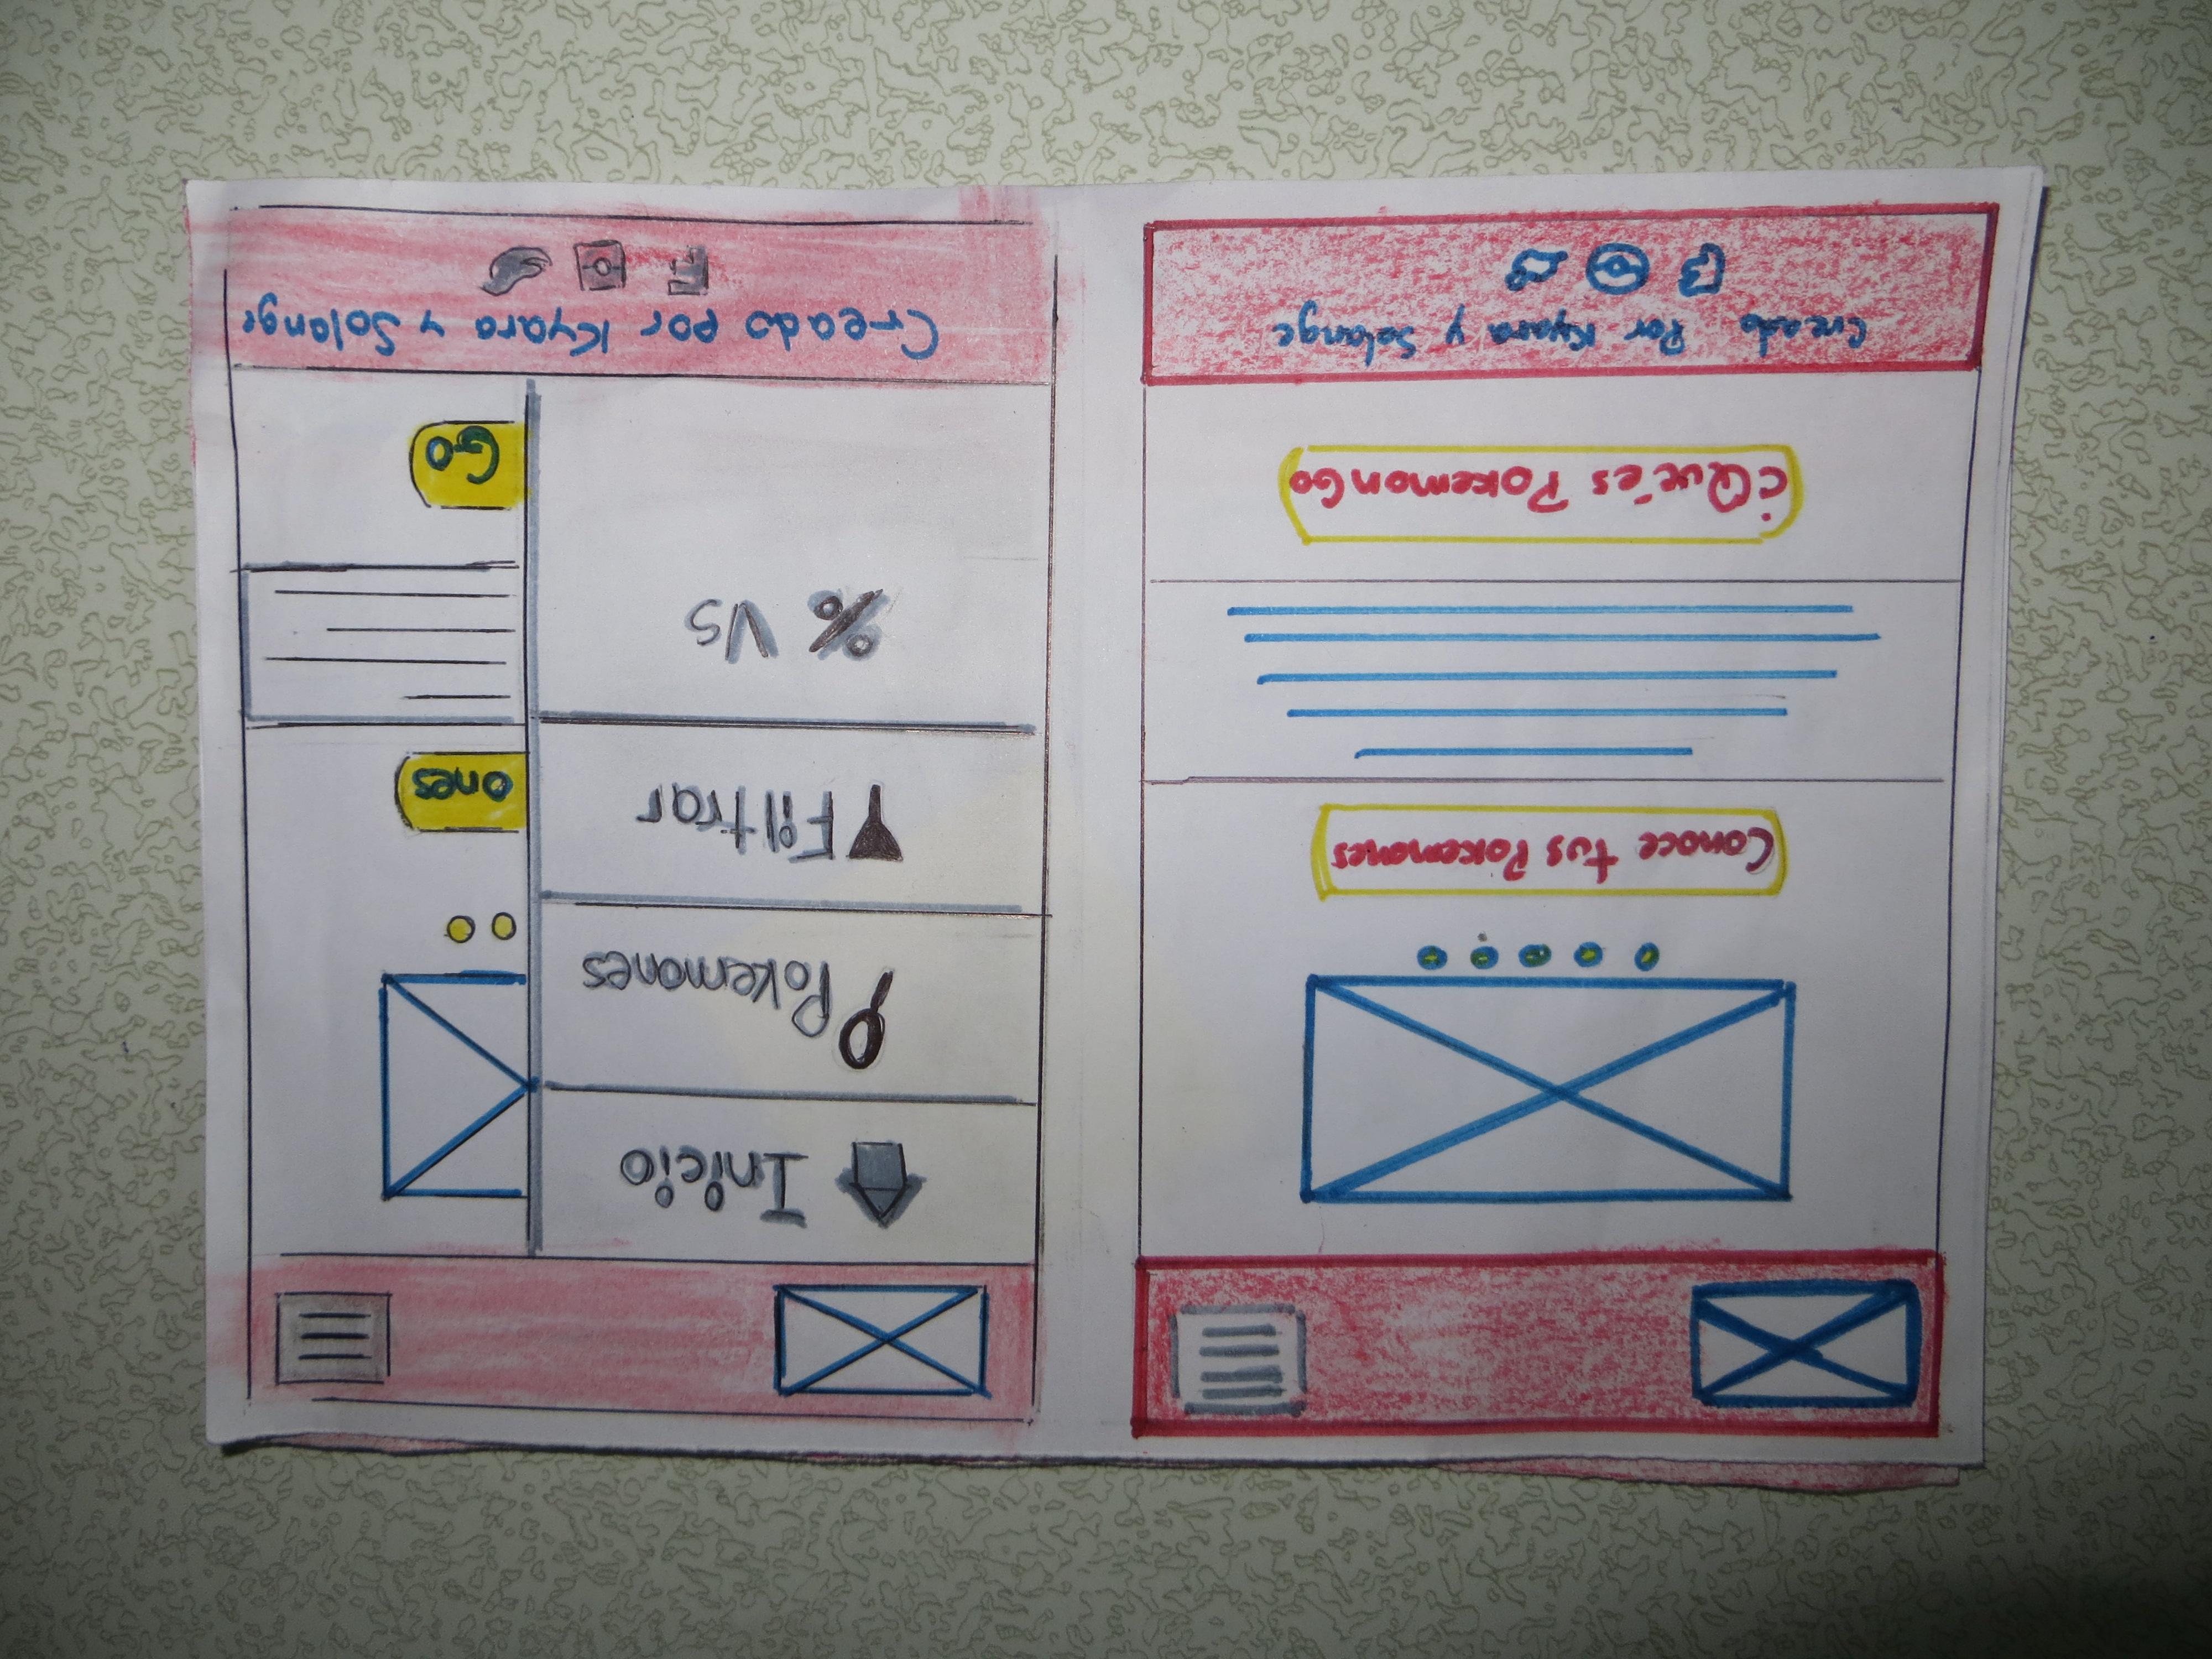 Conoce tus Pokemones
¿Qué es Pokemon Go
Creado Por Kyara y Solange
F
Inicio
Pokemones
Filtrar
% Vs
ones
Go
Creado por Kyara y Solange
F